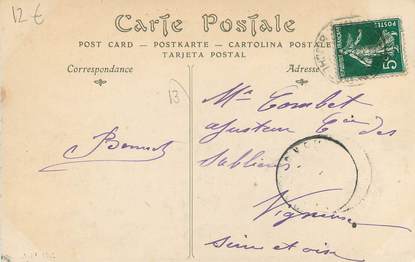 12 €
Carte Postale
POST CARD — POSTKARTE — CARTOLINA POSTALE
TARJETA POSTAL
Correspondance
Adresse
POSTES
5
13
Mr Combet
ajusteur Cie des
Sablières
Vigneux
Seine et oise